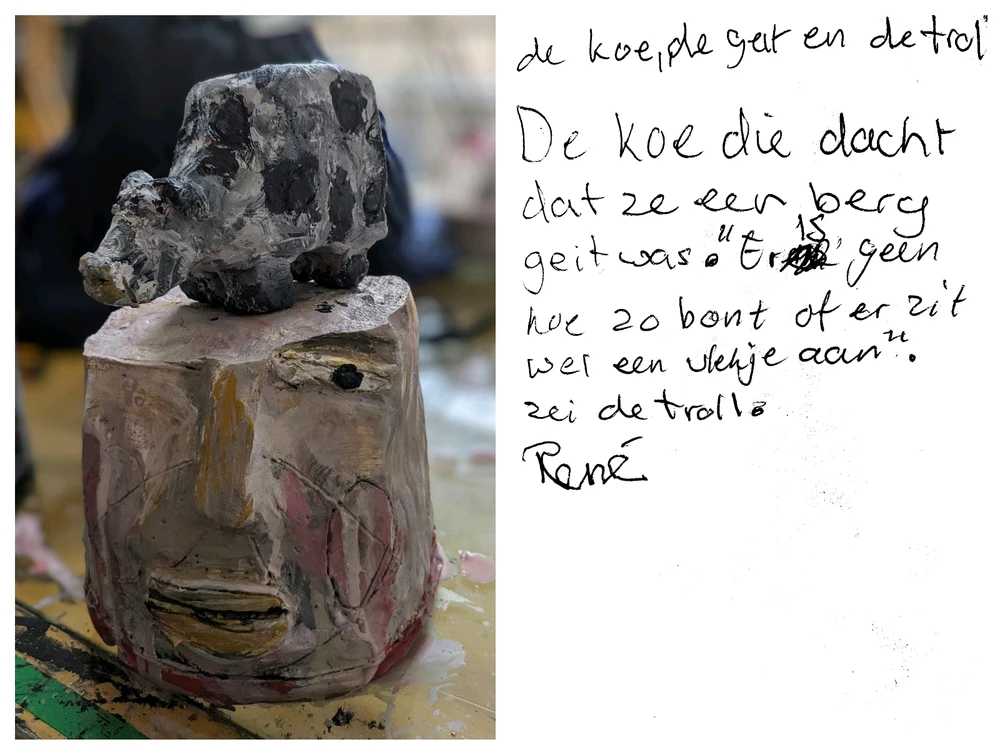 de koe, de geit en de trol
De koe die dacht
dat ze een berg
geit was. "Er is geen
koe zo bont of er zit
wel een vlekje aan".
zei de troll.
René